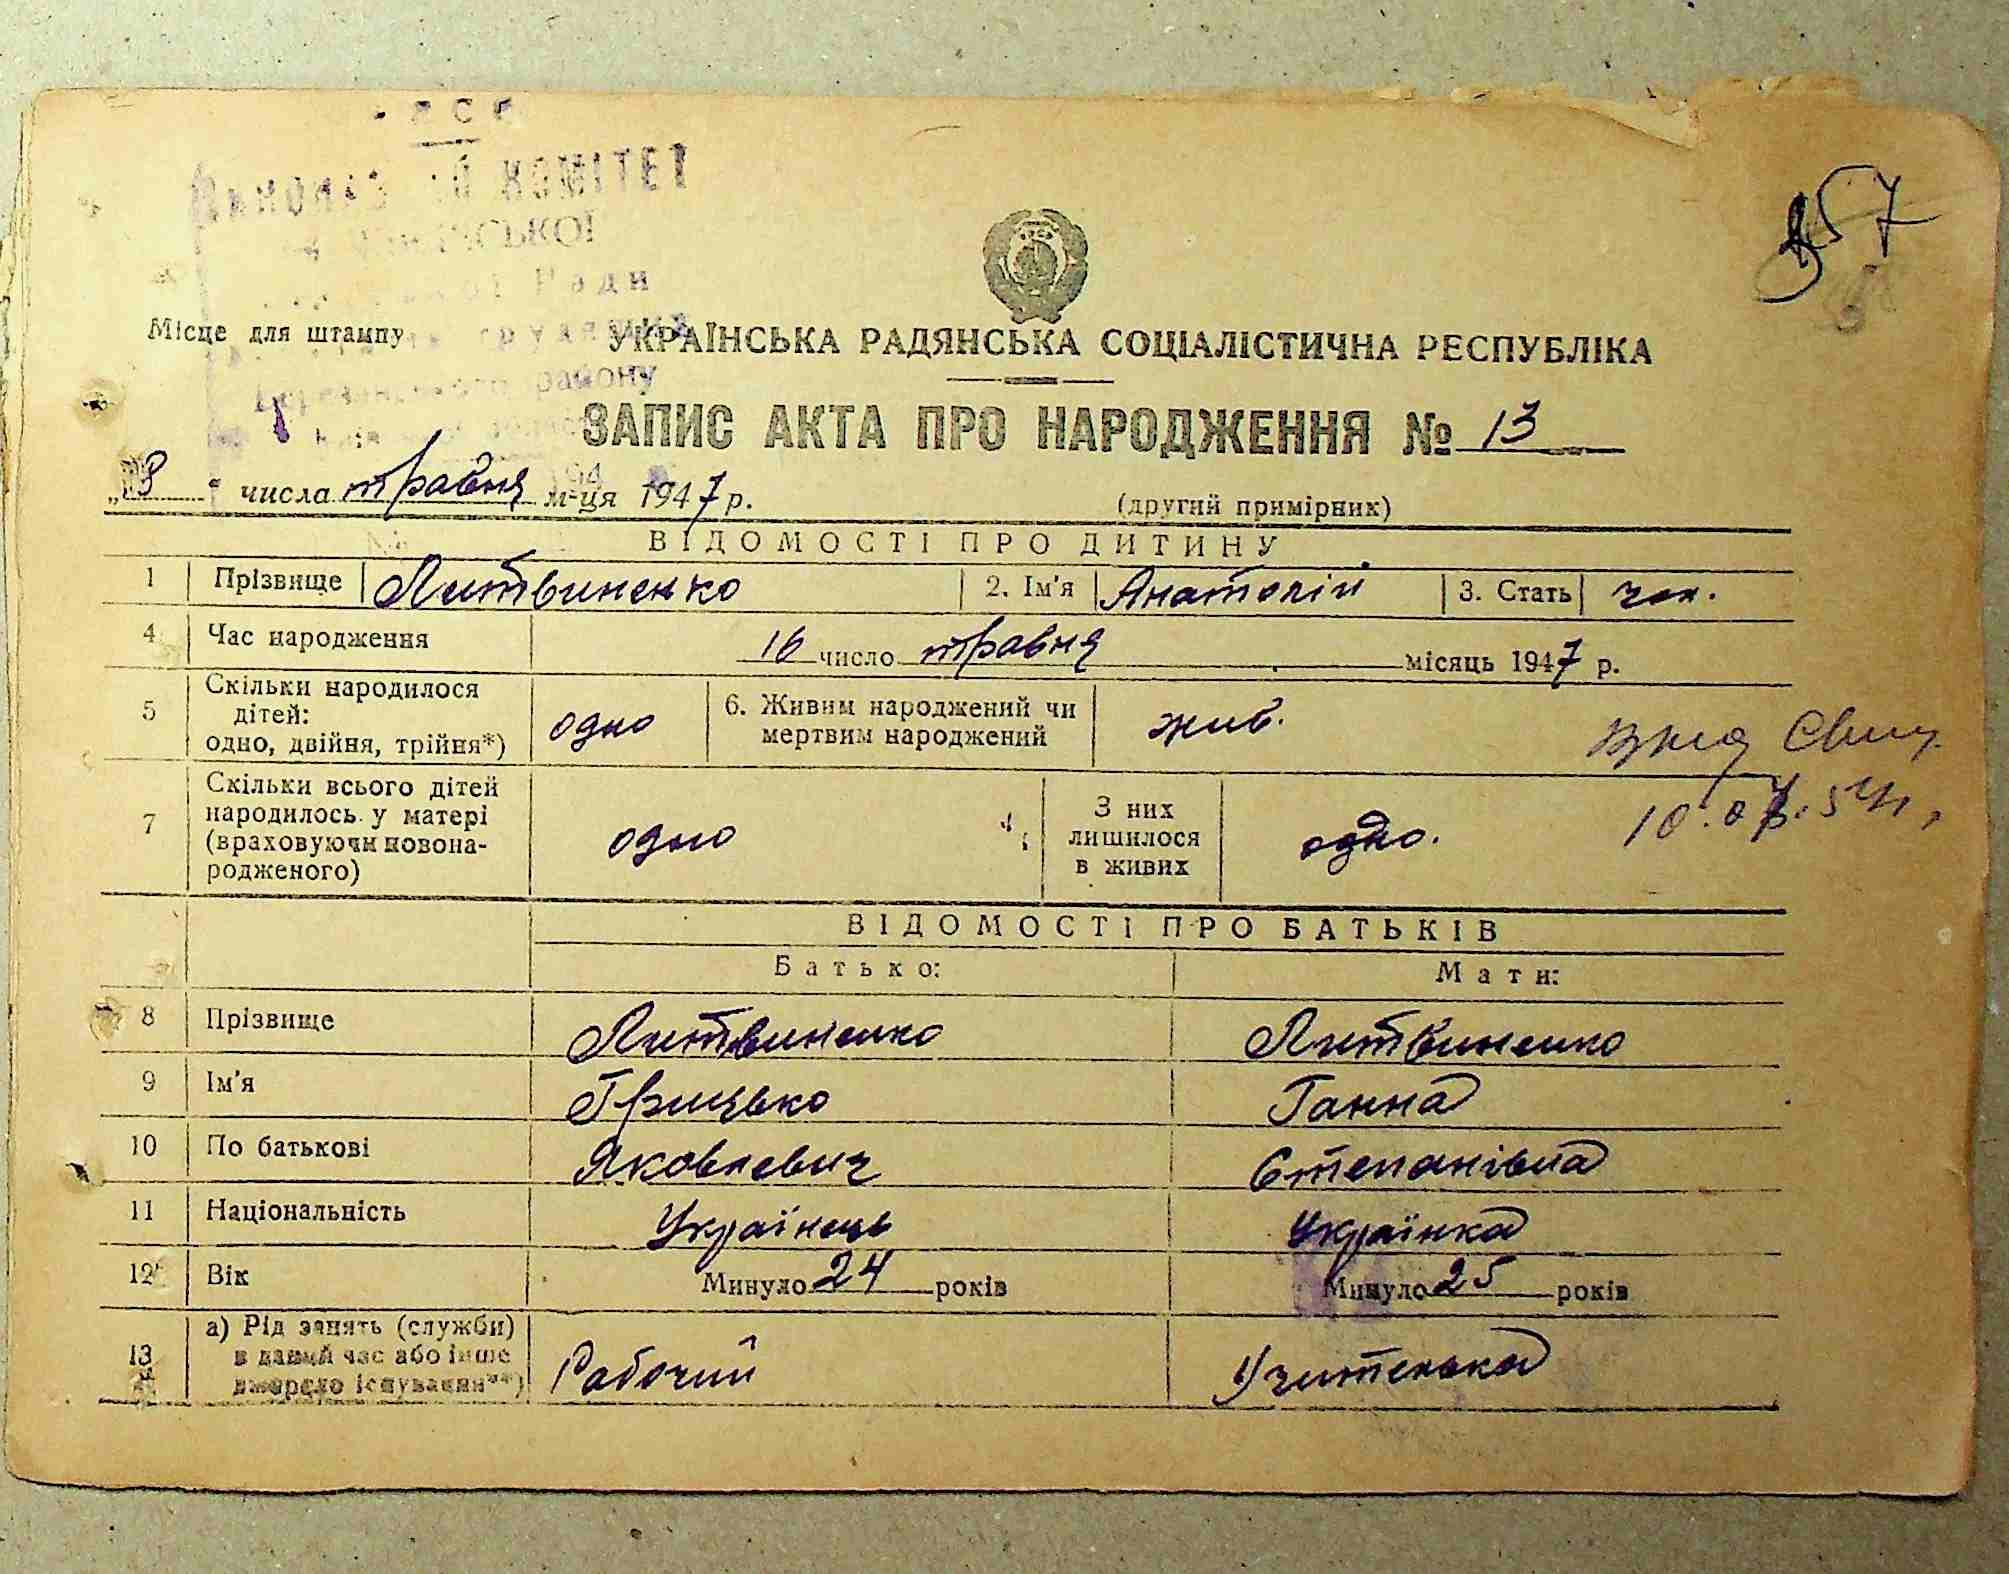 КОМІТЕТ
СЬКОЇ
Ради
району
357
Місце для штампу
УКРАЇНСЬКА РАДЯНСЬКА СОЦІАЛІСТИЧНА РЕСПУБЛІКА
ЗАПИС АКТА ПРО НАРОДЖЕННЯ № 13
числа травня м-ця 1947 р.
(другий примірник)
ВІДОМОСТІ ПРО ДИТИНУ
1 Прізвище Литвиненко 2. Ім'я Анатолій 3. Стать чол.
4 Час народження 16 число травня місяць 1947 р.
5 Скільки народилося дітей: одно, двійня, трійня*) одно 6. Живим народжений чи мертвим народжений жив.
7 Скільки всього дітей народилось у матері (враховуючи новонародженого) одно З них лишилося в живих одно.
ВІДОМОСТІ ПРО БАТЬКІВ
Батько: Мати:
8 Прізвище Литвиненко Литвиненко
9 Ім'я Грицько Ганна
10 По батькові Яковлевич Степанівна
11 Національність Українець Українка
12 Вік Минуло 24 років Минуло 25 років
13 а) Рід занять (служби) в даний час або інше джерело існування**) Рабочий Учителька